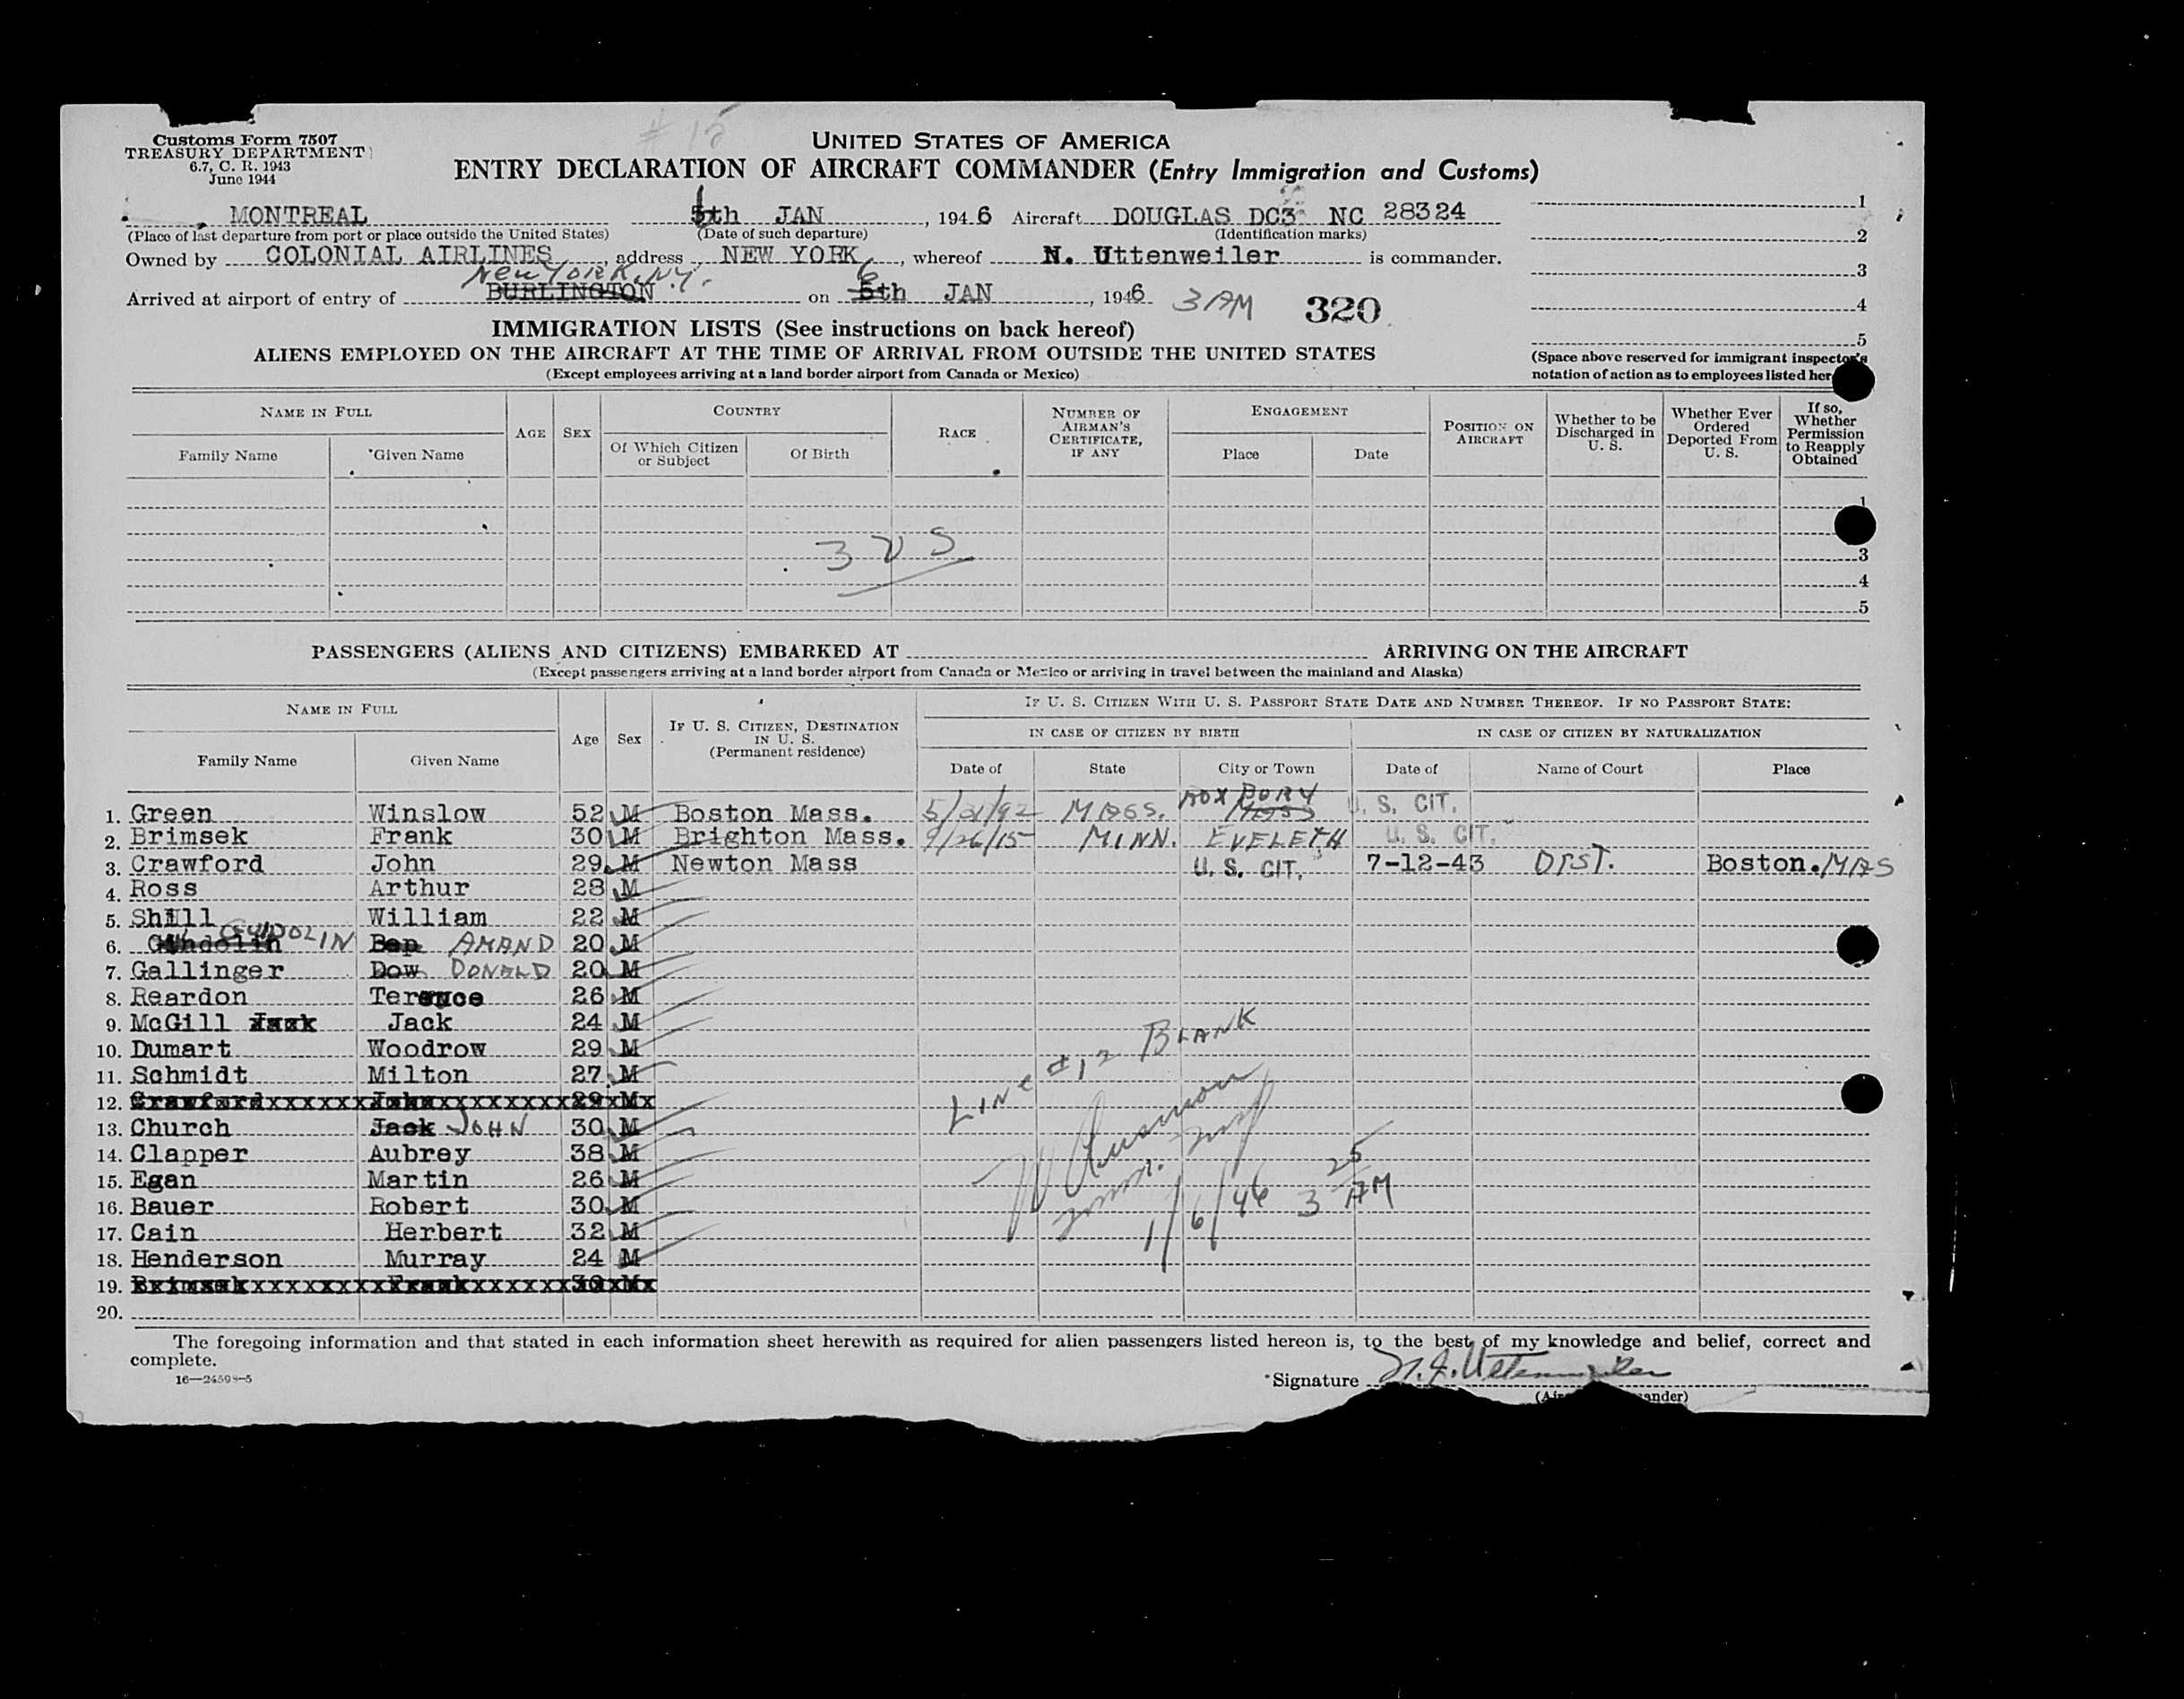 # 15
Customs Form 7507
TREASURY DEPARTMENT
6.7, C. R. 1943
June 1944
UNITED STATES OF AMERICA
ENTRY DECLARATION OF AIRCRAFT COMMANDER (Entry Immigration and Customs)
MONTREAL 6th JAN, 1946 Aircraft DOUGLAS DC3 NC 28324
(Place of last departure from port or place outside the United States) (Date of such departure) (Identification marks)
Owned by COLONIAL AIRLINES, address NEW YORK, whereof N. Uttenweiler is commander.
NEW YORK, N.Y.
Arrived at airport of entry of BURLINGTON on 6 5th JAN, 1946 3 AM 320
1
2
3
4
5
(Space above reserved for immigrant inspector's
notation of action as to employees listed her
IMMIGRATION LISTS (See instructions on back hereof)
ALIENS EMPLOYED ON THE AIRCRAFT AT THE TIME OF ARRIVAL FROM OUTSIDE THE UNITED STATES
(Except employees arriving at a land border airport from Canada or Mexico)
NAME IN FULL
Family Name Given Name
AGE SEX
COUNTRY
Of Which Citizen or Subject
Of Birth
RACE
NUMBER OF AIRMAN'S CERTIFICATE, IF ANY
ENGAGEMENT
Place Date
POSITION ON AIRCRAFT
Whether to be Discharged in U. S.
Whether Ever Ordered Deported From U. S.
If so, Whether Permission to Reapply Obtained
1
3
4
5
PASSENGERS (ALIENS AND CITIZENS) EMBARKED AT ARRIVING ON THE AIRCRAFT
(Except passengers arriving at a land border airport from Canada or Mexico or arriving in travel between the mainland and Alaska)
NAME IN FULL
Family Name Given Name
Age Sex
IF U. S. CITIZEN, DESTINATION IN U. S.
(Permanent residence)
IF U. S. CITIZEN WITH U. S. PASSPORT STATE DATE AND NUMBER THEREOF. IF NO PASSPORT STATE:
IN CASE OF CITIZEN BY BIRTH IN CASE OF CITIZEN BY NATURALIZATION
Date of State City or Town Date of Name of Court Place
1. Green Winslow 52 M Boston Mass. MASS. ROXBURY MASS U. S. CIT.
2. Brimsek Frank 30 M Brighton Mass. 9/26/15 MINN. EVELETH U. S. CIT.
3. Crawford John 29 M Newton Mass U. S. CIT. 7-12-43 DIST. Boston. MAS
4. Ross Arthur 28 M
5. Shill William 22 M
6. GUIDOLIN Bep AMAND 20 M
7. Gallinger Dow DONALD 20 M
8. Reardon Terence 26 M
9. McGill Jack Jack 24 M
10. Dumart Woodrow 29 M
11. Schmidt Milton 27 M
12. Crawfordxxxxxx John xxxxxxxx29xMx
13. Church Jack JOHN 30 M
14. Clapper Aubrey 38 M
15. Egan Martin 26 M
16. Bauer Robert 30 M
17. Cain Herbert 32 M
18. Henderson Murray 24 M
19. Brimsekxxxxxxxx Frankxxxxxx30xMx
20.
LINE #12 BLANK
1/6/46 3 25 AM
The foregoing information and that stated in each information sheet herewith as required for alien passengers listed hereon is, to the best of my knowledge and belief, correct and
complete.
16—24598-5
Signature N. J. Uttenweiler